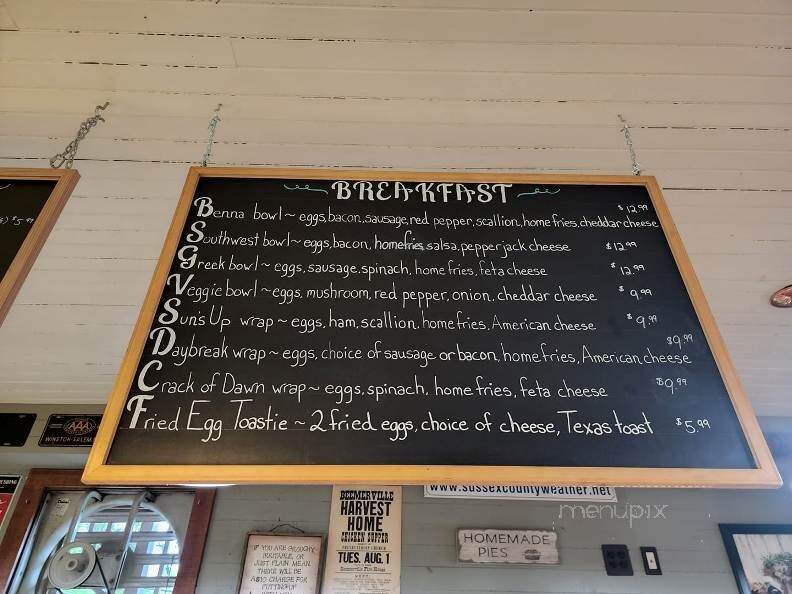 BREAKFAST
$12.99
Benna bowl~ eggs, bacon, sausage, red pepper, scallion, home fries, cheddar cheese
Southwest bowl~ eggs, bacon, homefries, salsa, pepper jack cheese $12.99
Greek bowl~ eggs, sausage, spinach, home fries, feta cheese $12.99
Veggie bowl~ eggs, mushroom, red pepper, onion, cheddar cheese $9.99
Sun's Up wrap~ eggs, ham, scallion, home fries, American cheese $9.99
$9.99
Daybreak wrap~ eggs, choice of sausage or bacon, home fries, American cheese
Crack of Dawn wrap~ eggs, spinach, home fries, feta cheese $9.99
Fried Egg Toastie ~ 2 fried eggs, choice of cheese, Texas toast $5.99
$5.99
AAA
WINSTON-SALEM
www.sussexcountyweather.net
menupix
BEEMERVILLE
HARVEST
HOME
CHICKEN SUPPER
TUES. AUG. 1
HOMEMADE
PIES
IF YOU ARE GROUCHY
IRRITABLE, OR
JUST PLAIN MEAN
THERE WILL BE
A $10 CHARGE FOR
PUTTING UP